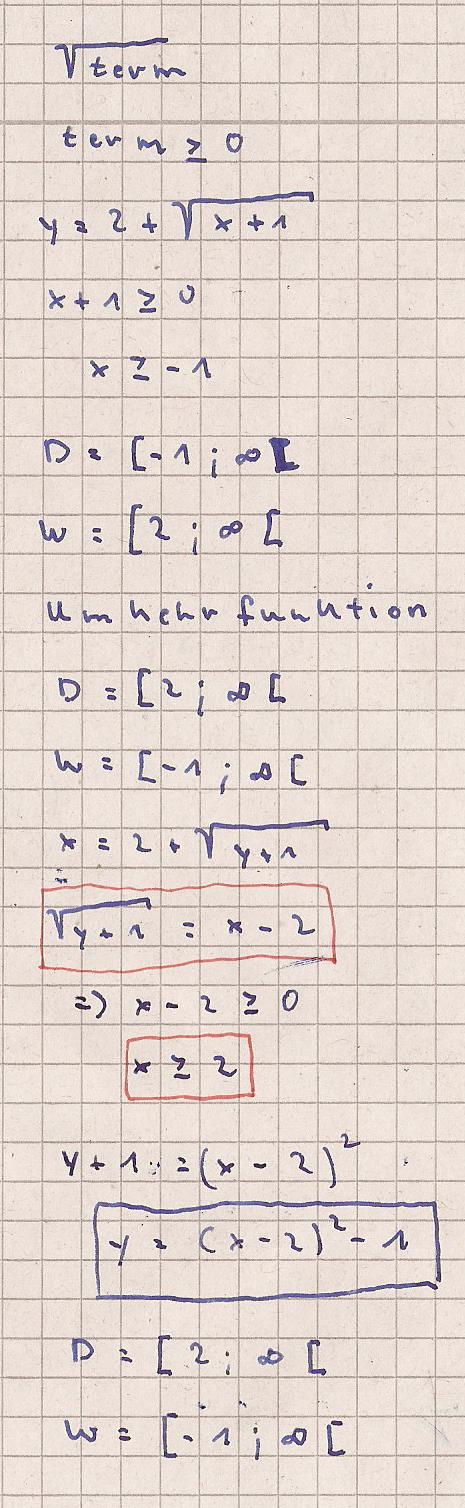 √term
term ≥ 0
y = 2 + √x+1
x+1 ≥ 0
x ≥ -1
D = [-1 ; ∞ [
W = [2 ; ∞ [
Umkehrfunktion
D = [2 ; ∞ [
W = [-1 ; ∞ [
x = 2 + √y+1
√y+1 = x - 2
=> x - 2 ≥ 0
x ≥ 2
y + 1 = (x - 2)²
y = (x-2)² - 1
D = [2 ; ∞ [
W = [-1 ; ∞ [